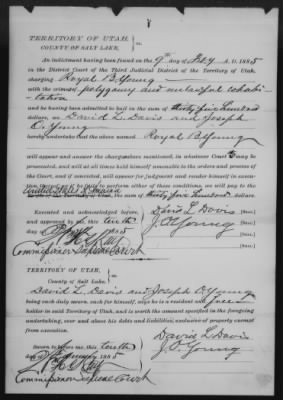 TERRITORY OF UTAH,
COUNTY OF SALT LAKE, } ss.
An indictment having been found on the 9th day of Feb'y A.D. 1885
in the District Court of the Third Judicial District of the Territory of Utah,
charging Royal B. Young
with the crimes polygamy and unlawful cohabi-
tation
and he having been admitted to bail in the sum of thirty five hundred
dollars, we David L. Davis and Joseph
O. Young
hereby undertake that the above named Royal B. Young
will appear and answer the charge above mentioned, in whatever Court it may be
prosecuted, and will at all times hold himself amenable to the orders and process of
the Court, and if convicted, will appear for judgment and render himself in execu-
tion thereof, or if he fails to perform either of these conditions, we will pay to the
United States of America
the sum of thirty five hundred dollars.
Executed and acknowledged before,
and approved by me this tenth
day of 1885
Commissioner Supreme Court
David L. Davis [SEAL.]
J. O. Young [SEAL.]
[SEAL.]
TERRITORY OF UTAH,
County of Salt Lake. } ss.
David L. Davis and Joseph O. Young
being each duly sworn, each for himself, says he is a resident and free
holder in said Territory of Utah, and is worth the amount specified in the foregoing
undertaking, over and above his debts and liabilities, exclusive of property
exempt from execution.
Sworn to before me, this tenth
day of February 1885
Commissioner Supreme Court
David L. Davis
J. O. Young